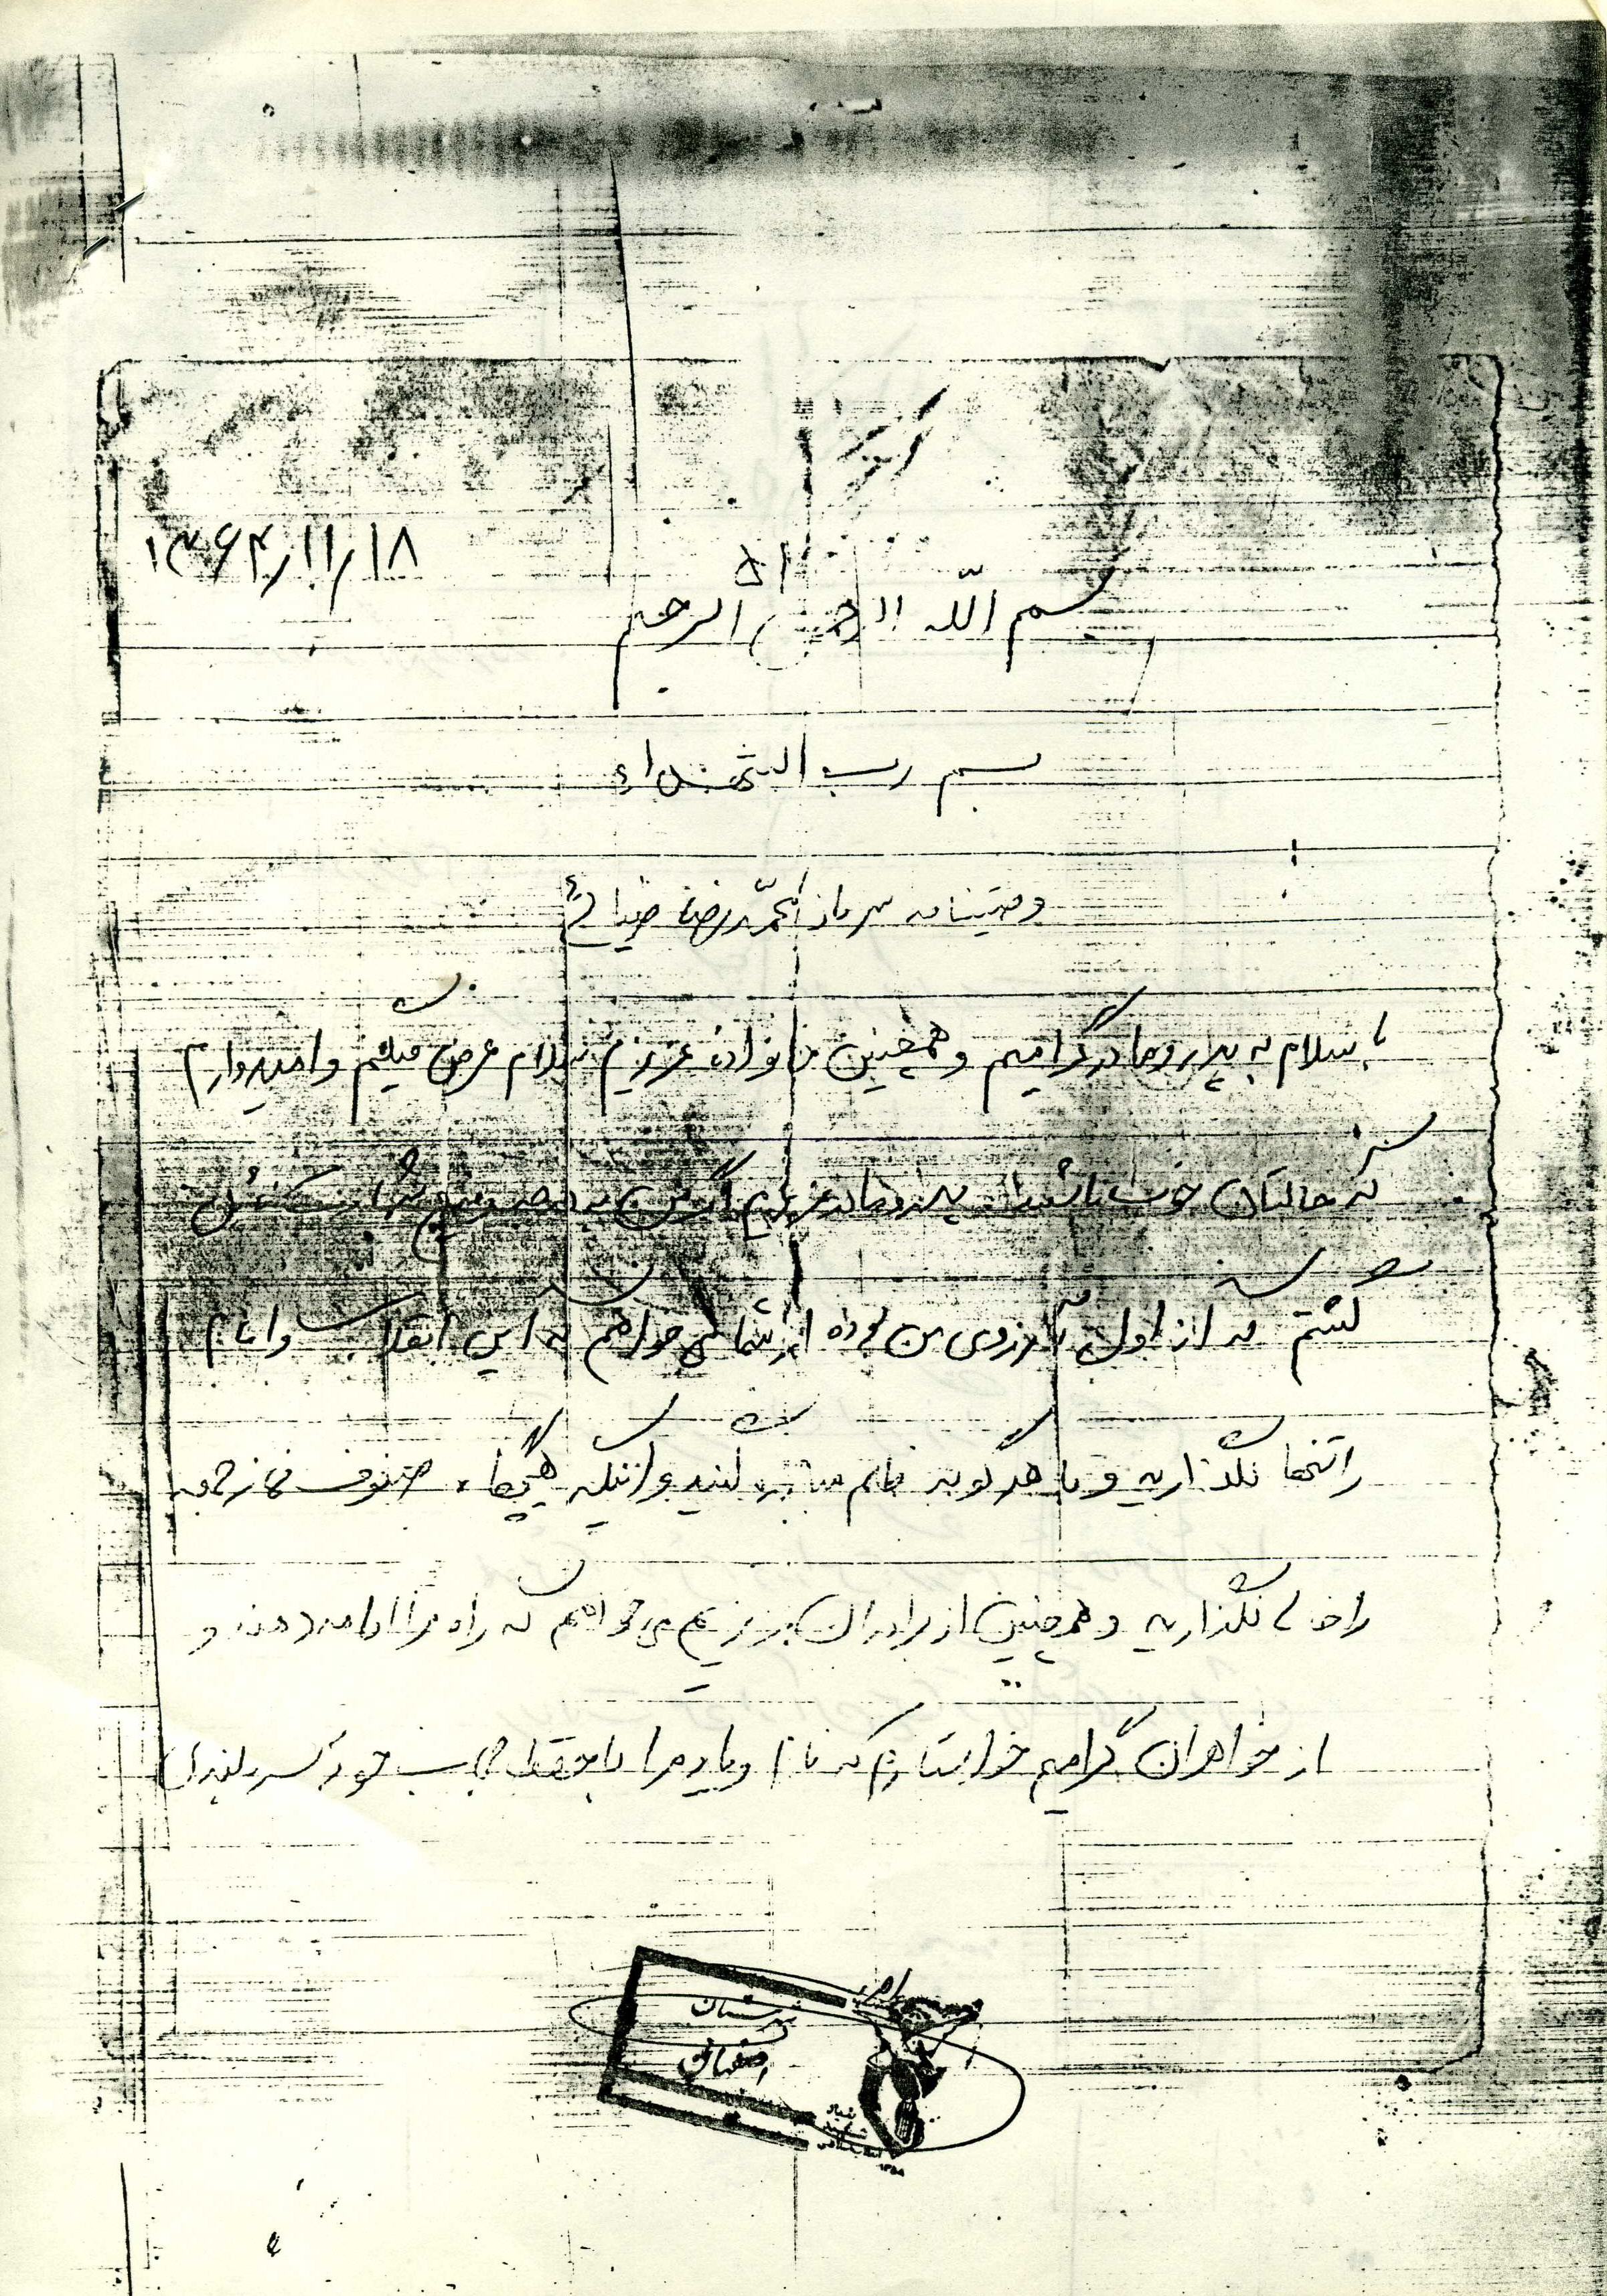 ۱۳۶۴/۱۱/۱۸
بسم اللّه الرحمن الرحیم
بسم رب الشهداء
وصیتنامه سرباز محمّدرضا ضیائی
با سلام به پدر و مادر گرامیم و همچنین خانواده عزیزم سلام عرض میکنم و امیدوارم
که حالتان خوب باشد. پدر و مادر عزیزم اگر من به درجه رفیع شهادت نائل
گشتم که از اول آرزوی من بوده از شما می خواهم که این انقلاب و امام
را تنها نگذارید و با هرگونه ظلم مبارزه کنید و اینکه هیچگاه صفوف نماز جمعه
را خالی نگذارید و همچنین از برادران عزیزم می خواهم که راه مرا ادامه دهند و
از خواهران گرامیم خواستارم که نام و یاد مرا با حفظ حجاب خود سربلند
شهرستان
اصفهان
بنیاد
شهید
انقلاب اسلامی
۱۳۵۸